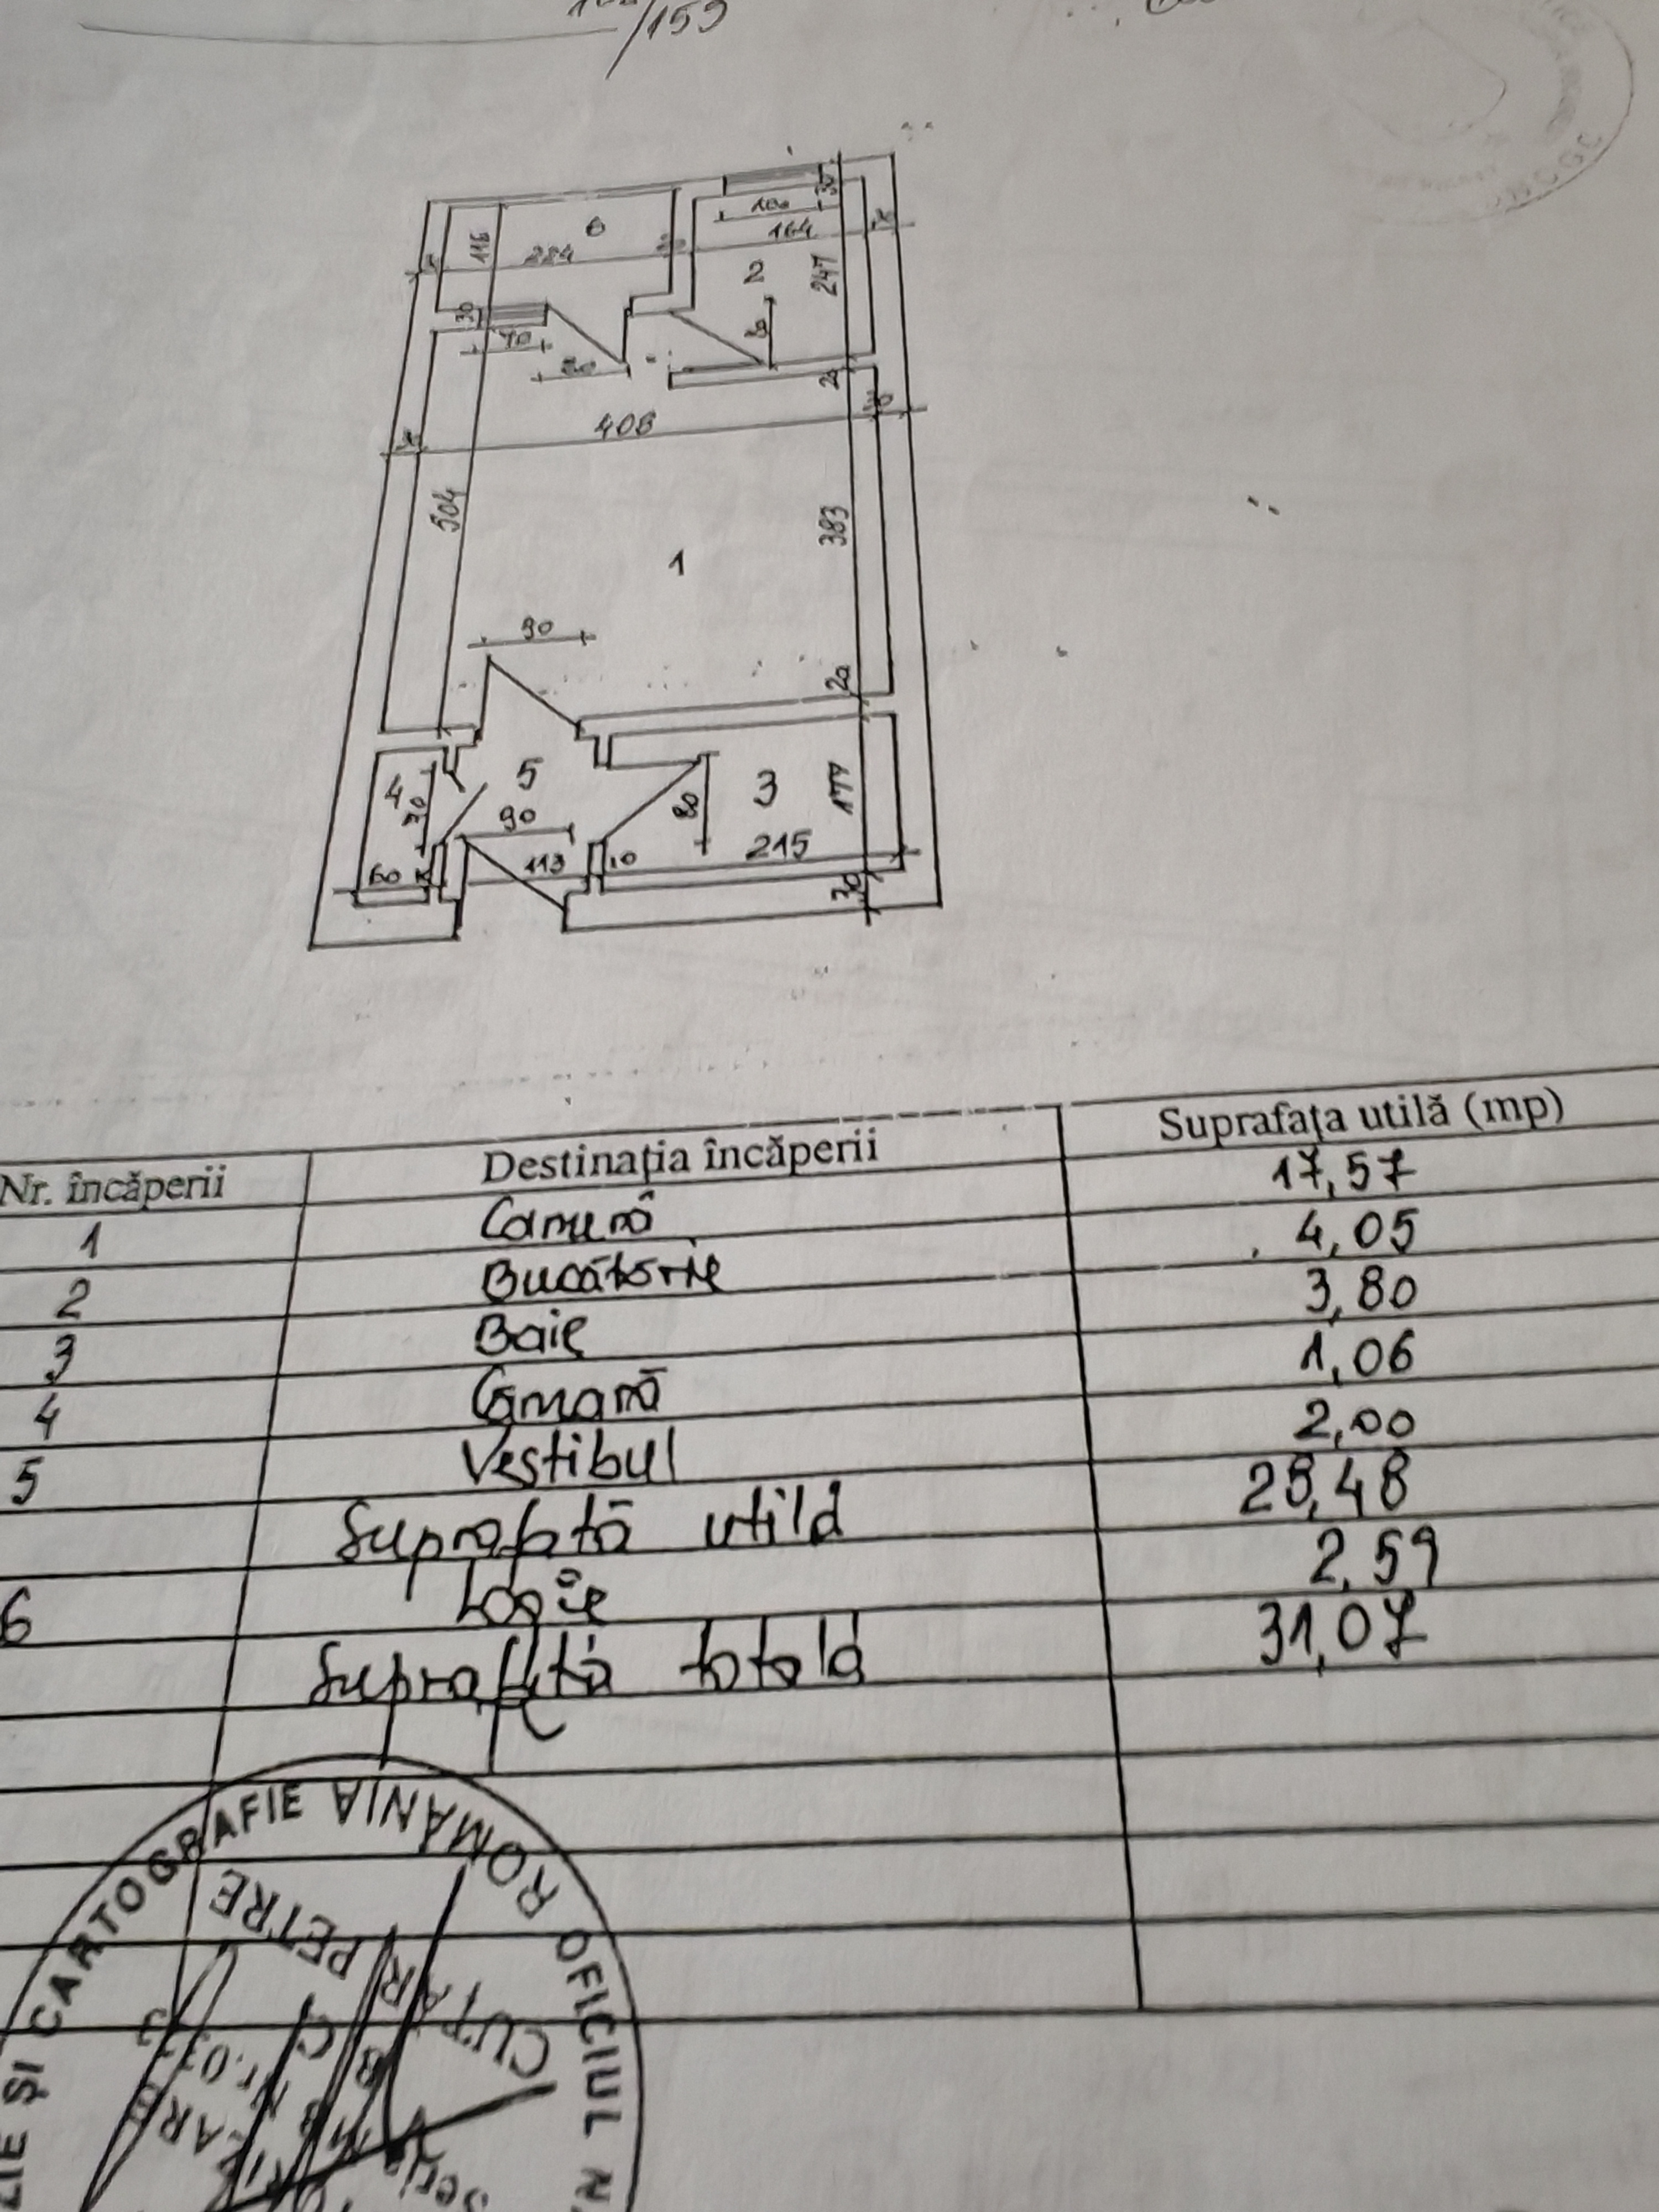 /159
6
116
284
100
30
164
2
247
30
70
80
80
20
408
504
1
383
90
20
4
70
5
90
3
80
177
215
60
113
10
30
Nr. încăperii Destinația încăperii Suprafața utilă (mp)
1 Cameră 17,57
2 Bucătărie 4,05
3 Baie 3,80
4 Cămară 1,06
5 Vestibul 2,00
Suprafață utilă 28,48
6 Logie 2,59
Suprafață totală 31,07
ȘI CARTOGRAFIE ROMÂNIA OFICIUL N
PETRE